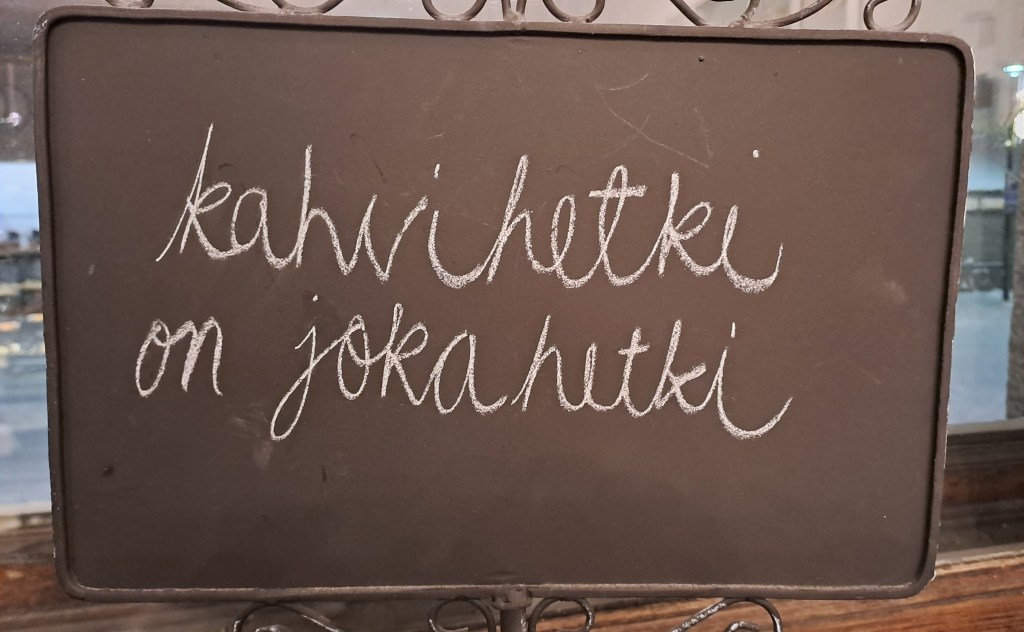 kahvihetki
on joka hetki